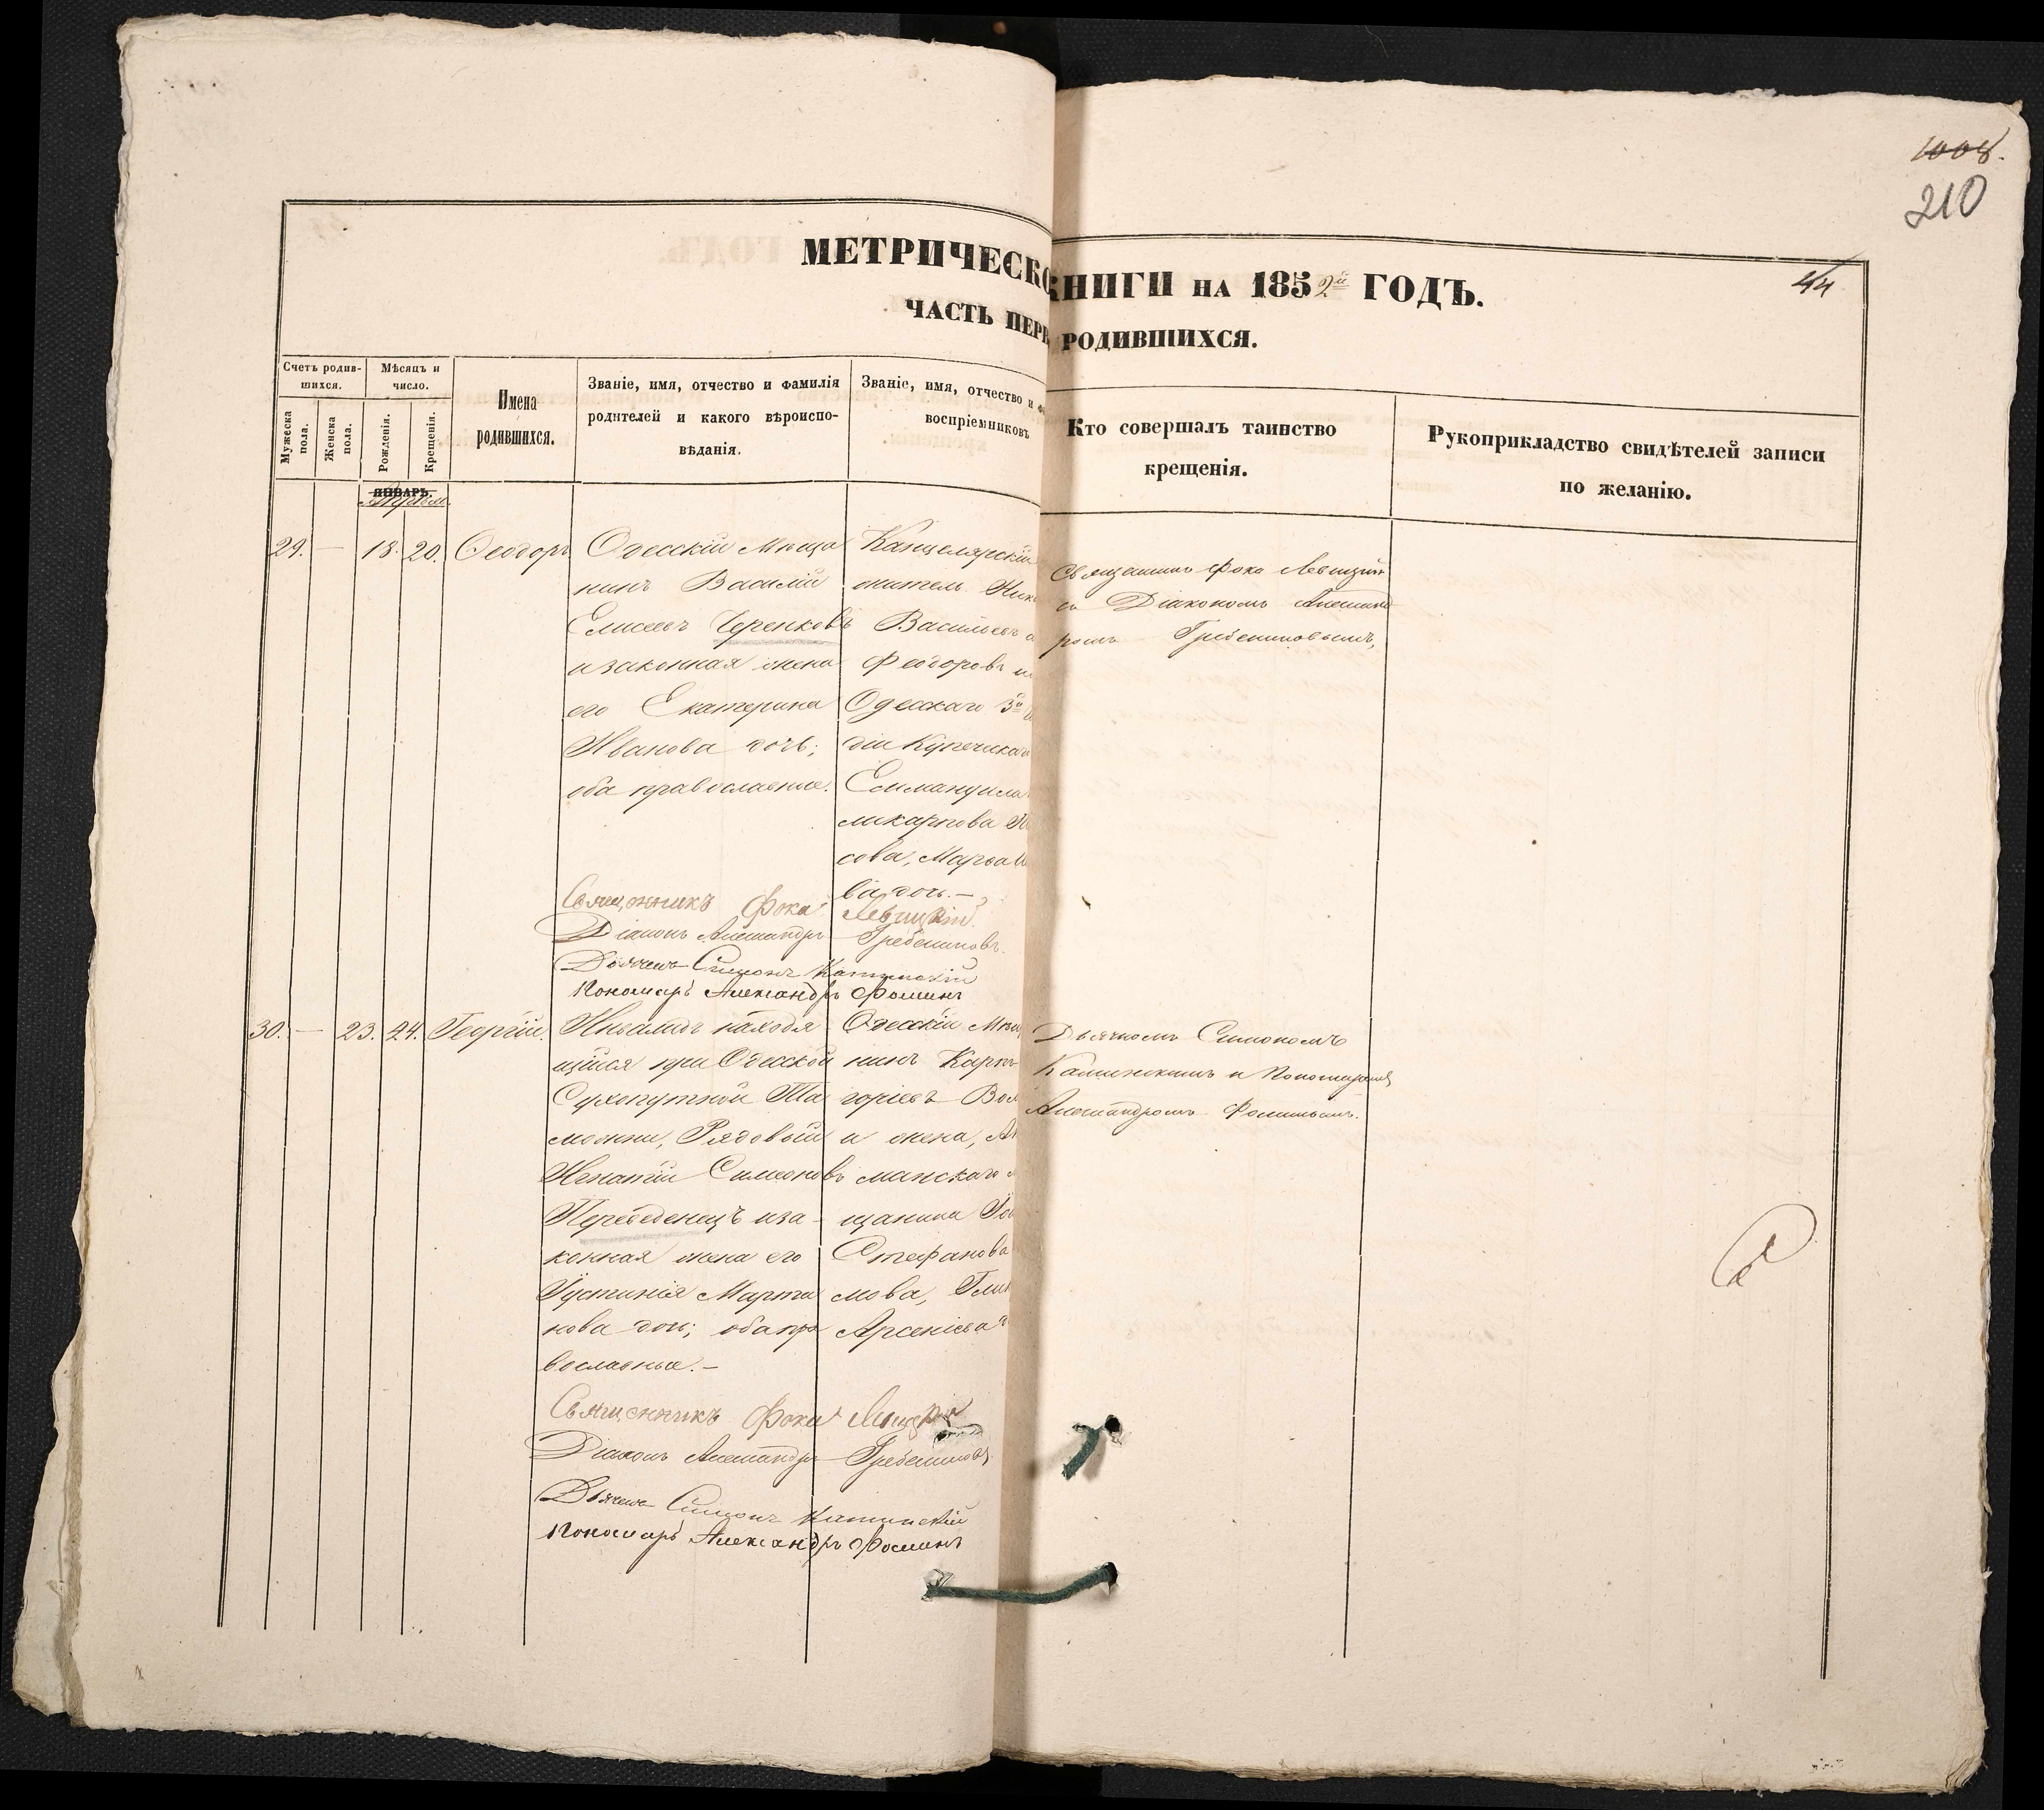 1008.
210
44
МЕТРИЧЕСКО КНИГИ НА 1852й ГОДЪ.
ЧАСТЬ ПЕРВ РОДИВШИХСЯ.
Счетъ родив-
шихся.
Мужеска
пола.
Женска
пола.
Мѣсяцъ и
число.
Рожденія.
Крещенія.
Имена
родившихся.
Званіе, имя, отчество и фамилія
родителей и какого вѣроиспо-
вѣданія.
Званіе, имя, отчество и
воспріемниковъ
Кто совершалъ таинство
крещенія.
Рукоприкладство свидѣтелей записи
по желанію.
ЯНВАРЬ.
Апрѣль
29. — 18. 20. Ѳеодоръ
Одесскій Мѣща
нинъ Василій
Елисеевъ Черенковъ
и законная жена
его Екатерина
Иванова дочь;
оба православные.
Канцелярскій
житель Ник
Васильевъ
Феодоровъ и
Одесскаго 3й
діи Купчика
Еммануила
ликарпова П
сова, Марѳа И
ва дочь.—
Священникъ Фока Левицкій
съ Діакономъ Александ
ромъ Гребенниковымъ,
Священникъ Фока Левицкій
Діаконъ Александръ Гребенниковъ
Дьячекъ Симонъ Каминскій
Пономарь Александръ Фоминъ
30. — 23. 24. Георгій.
Инвалидъ находя
щійся при Одесской
Сухопутной Та
можни, Рядовый
Игнатій Симеоновъ
Перебеденецъ и за-
конная жена его
Іустинія Марти
нова дочь; оба пра
вославные.—
Одесскій Мѣщ
нинъ Карпъ
горіевъ Вол
и жена, Ак
манскаго м
щанина Гри
Стефанова
мова, Глик
Арсеніева д
Дьячкомъ Симономъ
Каминскимъ и Пономаремъ
Александромъ Фоминымъ.
Священникъ Фока Левицкій
Діаконъ Александръ Гребенниковъ
Дьячекъ Симонъ Каминскій
Пономарь Александръ Фоминъ